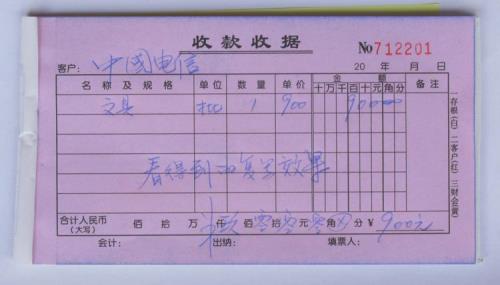 收款收据
№712201
客户：中國电信
20 年 月 日
名称及规格 单位 数量 单价 金额 备注
十万千百十元角分
文具 批 1 900 90000
看得到的复写效果
合计人民币（大写） 佰 拾 万 仟 玖 佰 零 拾 零 元 零 角 分 ¥ 900元
会计： 出纳： 填票人：
一存根（白）二客户（红）三财会（黄）